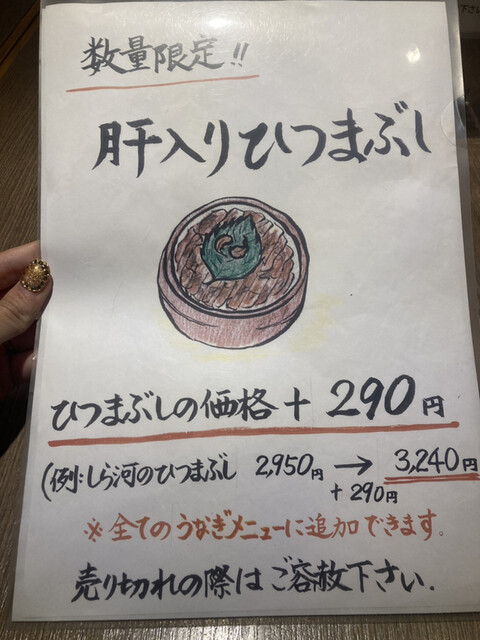 数量限定!!
肝入りひつまぶし
ひつまぶしの価格+290円
(例:しら河のひつまぶし 2,950円→3,240円
+290円
※全てのうなぎメニューに追加できます。
売り切れの際はご容赦下さい.